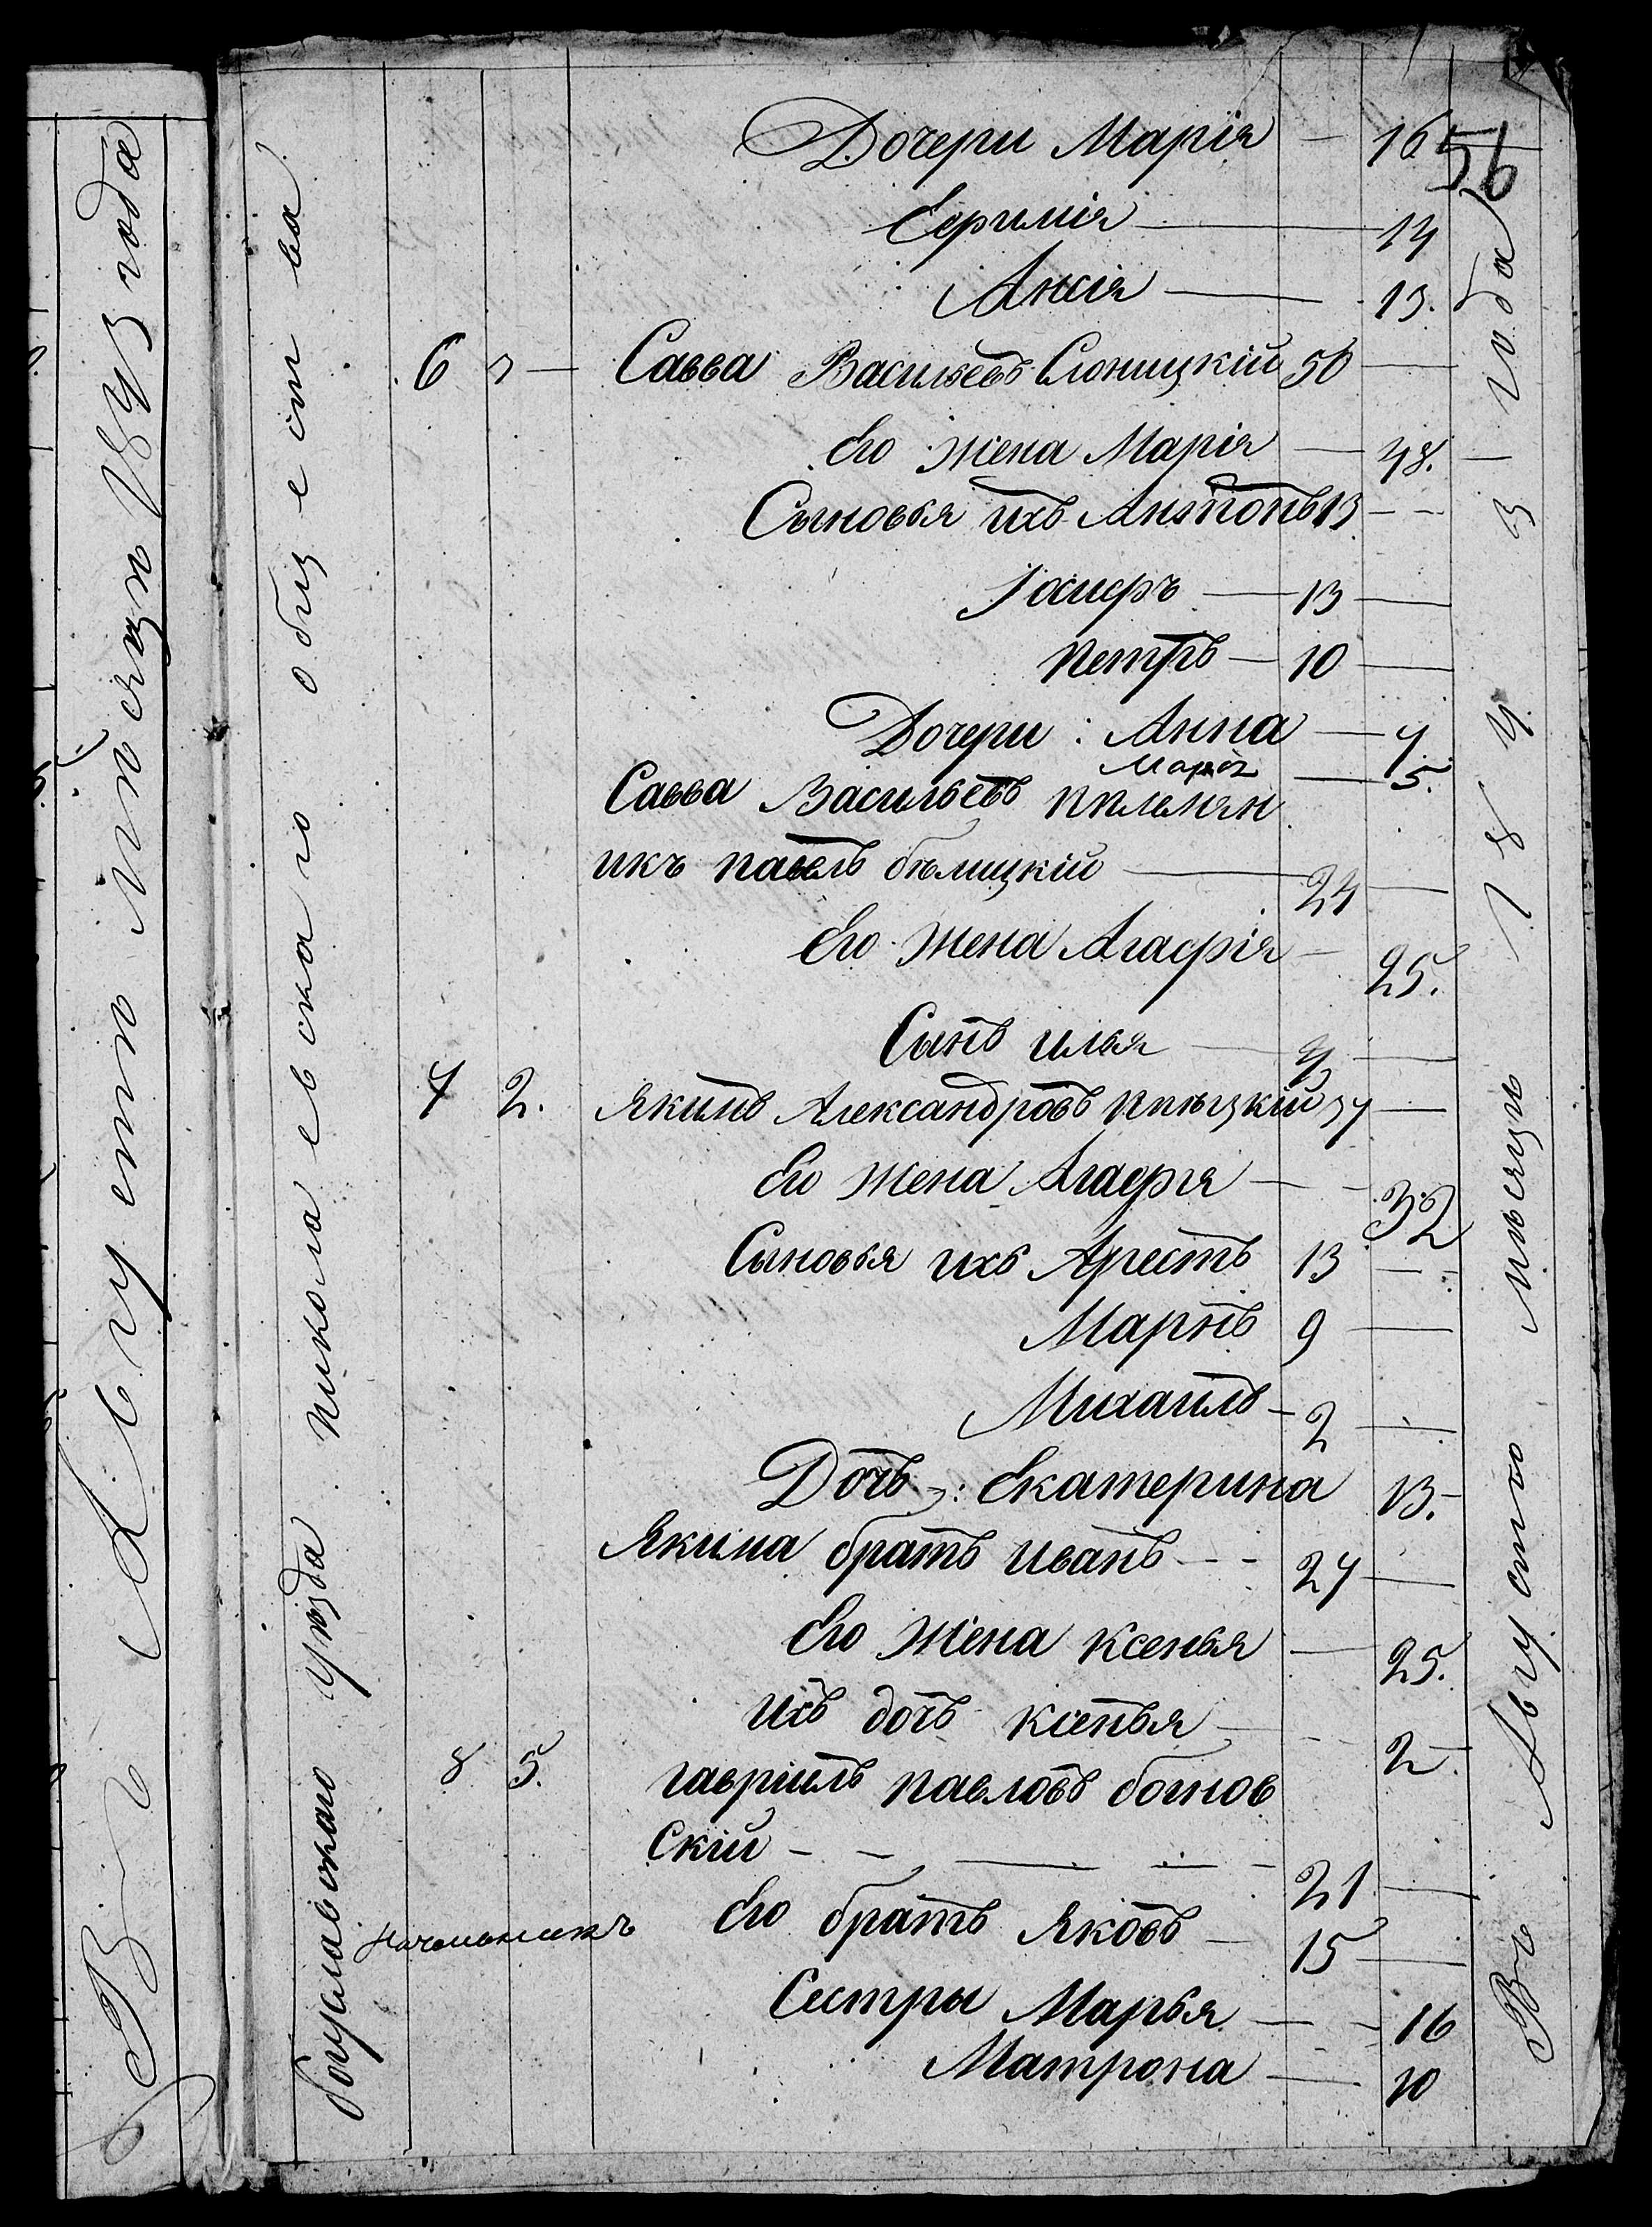 Въ Августѣ мѣсяцѣ 1843 года
Богуславскаго уѣзда Николаевскаго общества
56
Дочери Марія — 16
Ефимія — 14
Ансія — 13.
6 Савва Васильевъ Слоницкій 50 —
Его жена Марія — 48. —
Сыновья ихъ Антонъ 13 — —
Іосифъ — 13 —
Петръ — 10 —
Дочери: Анна — 7
Марія — 5.
Савва Васильевъ племян
икъ павелъ бѣлицкій — 24 —
Его жена Агафія — 25.
Сынъ илья — 4 —
7 2. Якимъ Александровъ 37 —
Его жена Агафія — — 32
Сыновья ихъ Арестъ 13 — —
Маркъ 9 —
Михаилъ — 2 —
Дочь: Екатерина 13.
Якима братъ иванъ — — 27 —
Его жена ксенья — 25.
ихъ дочь ксенья — — 2.
8 5. гаврiилъ павловъ богнов
скій — — — — — 21 —
Его братъ Яковъ — 15 —
Начальникъ
Сестры Марья — — 16
Матрона — 10
Въ Августѣ мѣсяцѣ 1843 года